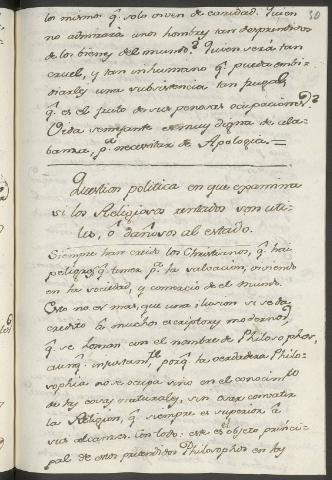 30
los mismos q.e solo viven de caridad. Quien
no admirará unos hombres tan desprendidos
de los bienes del mundo? Quien será tan
cruel, y tan inhumano q.e pueda embi-
diarles una subsistencia tan frugal,
q.e es el fruto de sus penosas ocupaciones?
Vida semejante es muy digna de ala-
banza, p.a necesitar de Apologia. =
Question politica en que examina
si los Religiosos rentados son uti-
les, ó dañosos al estado.
Siempre han creido los Christianos, q.e hai
peligros q.e temer p.a la salvacion, viviendo
en la sociedad, y comercio de el mundo.
Esto no es mas, que una ilusion si se da
credito à muchos escriptores modernos,
q.e se honran con el nombre de Philosophos,
aunq.e injustam.te, porq.e la verdadera Philo-
sophia no se ocupa sino en el conocim.to
de las cosas naturales, sin osar combatir
la Religion, q.e siempre es superior à
sus alcances. Con todo: este es el objeto princi-
pal de estos pretendidos Philosophos en los